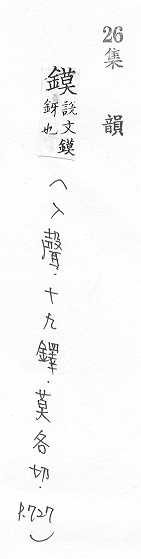 26集韻
鏌說文鏌釾也
(入聲.十九鐸.莫各切.P.727)